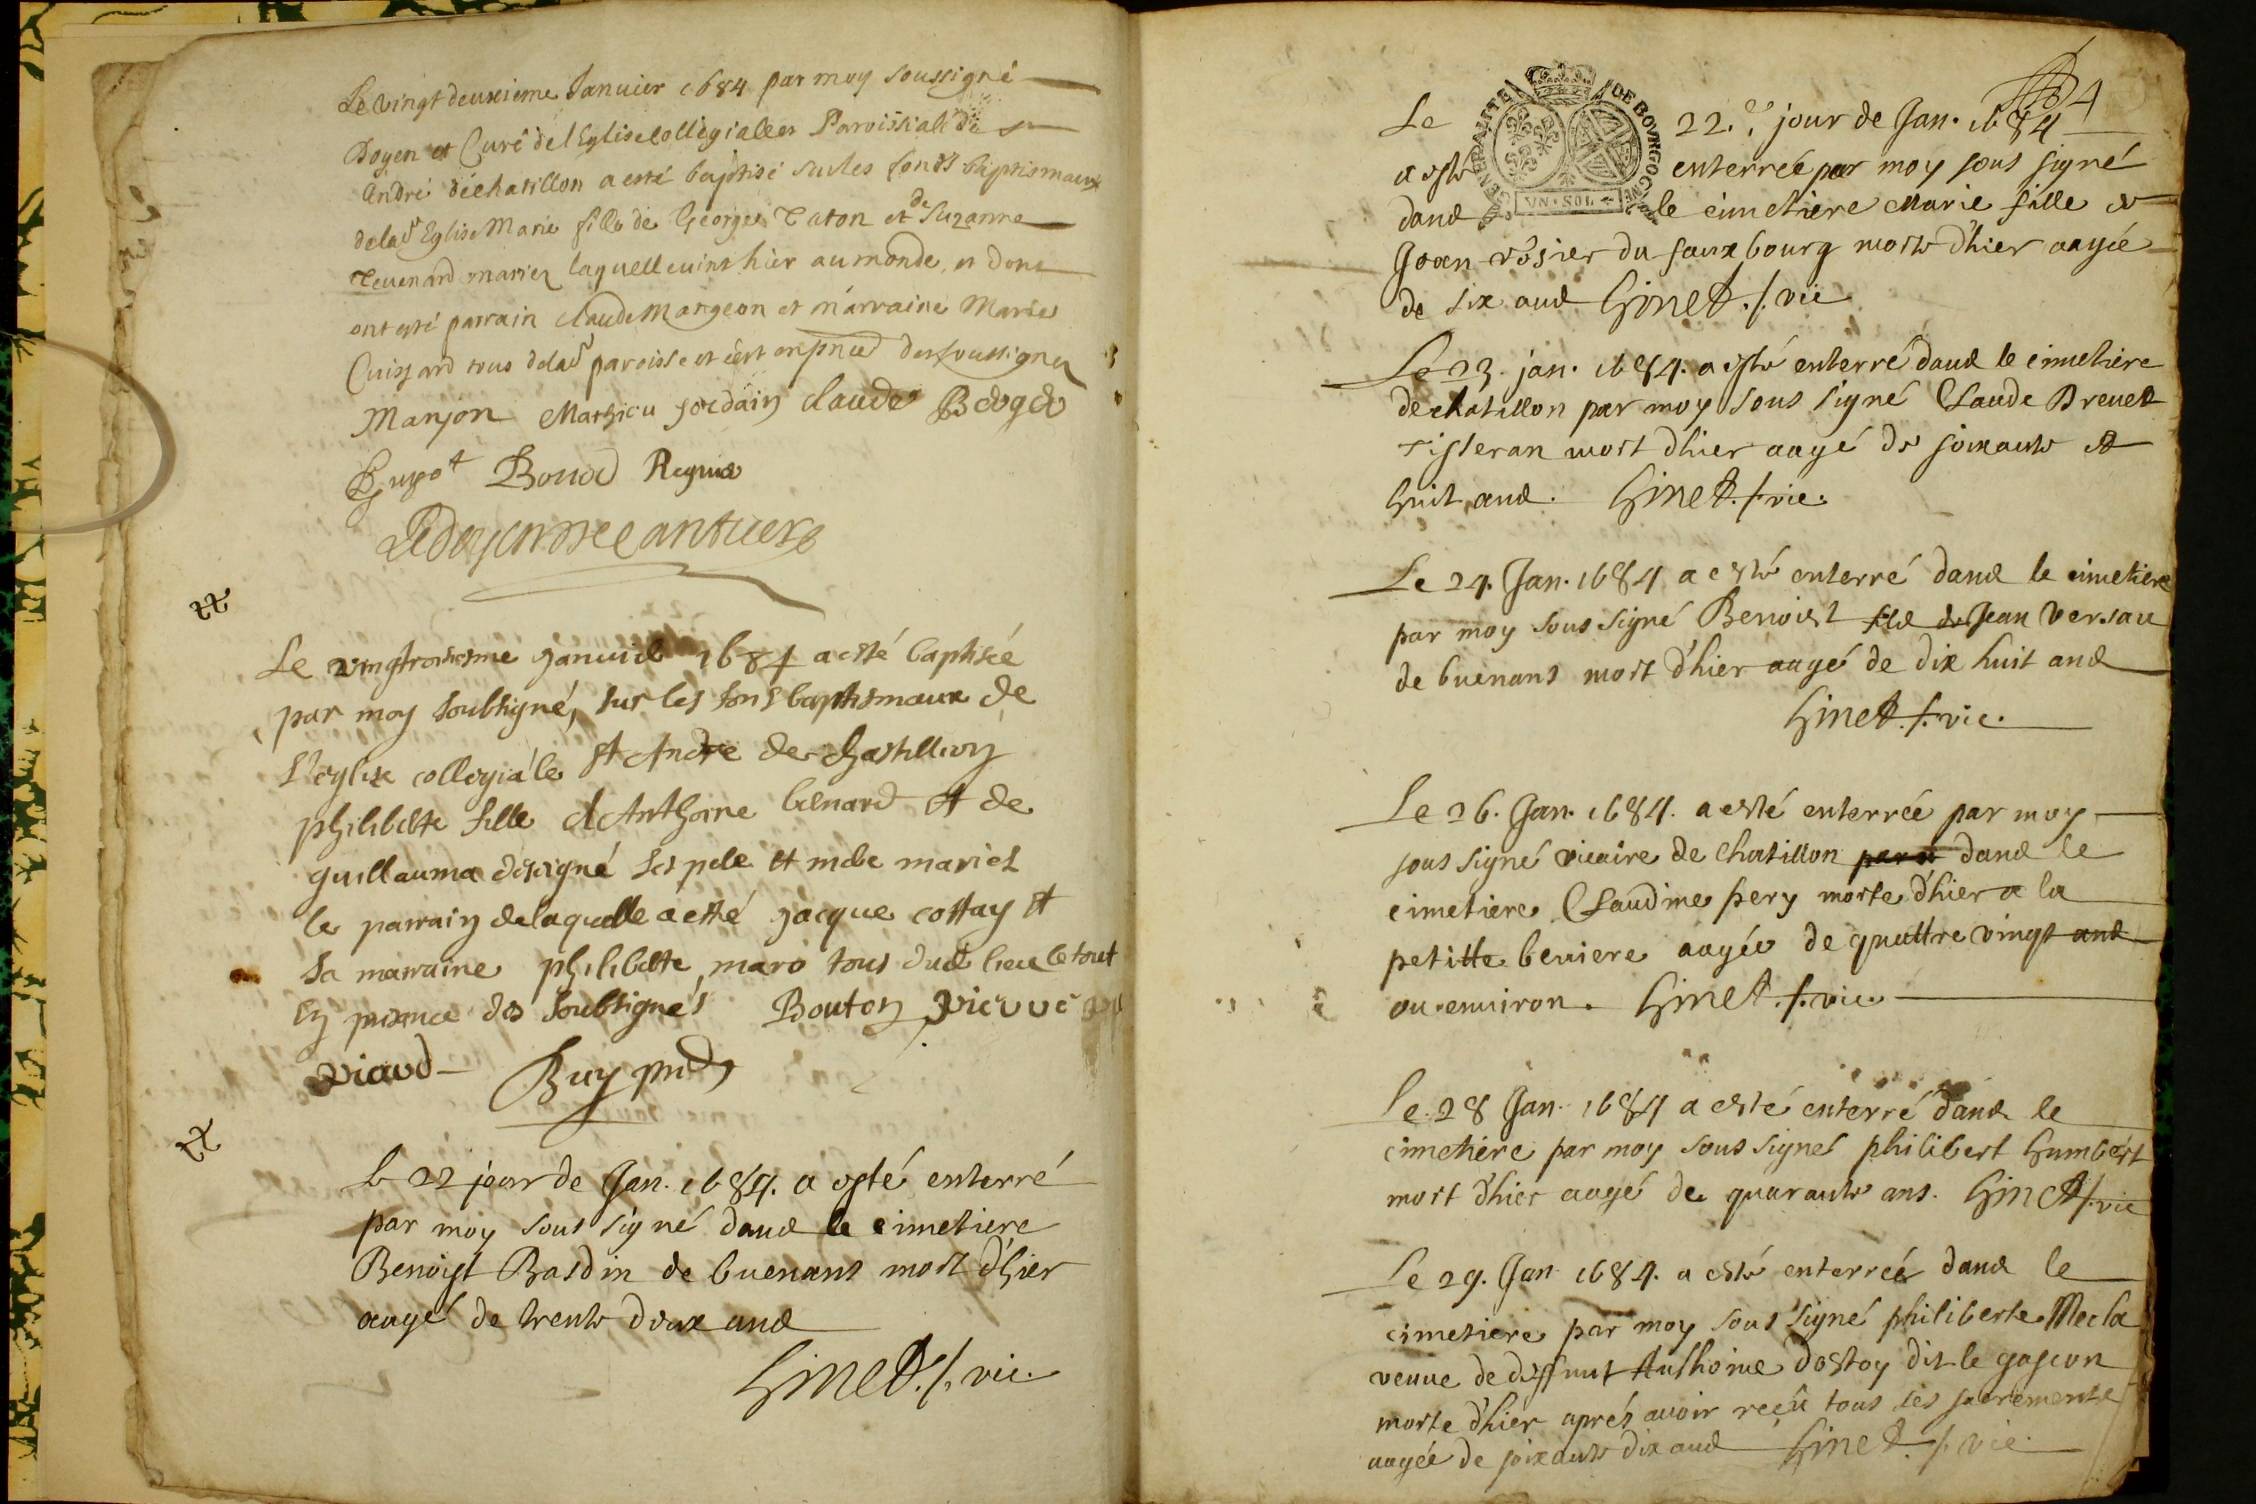 Le vingt deuxieme Januier 1684 par moy soussigné
Doyen et Curé de l'Eglise collegialle et Paroissiale de st
André de chatillon a esté baptisé sur les fonds baptismaux
de lad Eglise Marie fille de George Taton et de Suzanne
Teuenard mariez laquelle vint hier au monde, et dont
ont esté parrain claude Mangeon et marraine Marie
Cuizard tous de lad paroisse et c'est en pnce des soussignez
Manjon Mathieu jordain claude Berger
Guyot Bona Reyna
Le doyen
Le vingtroisiesme januier 1684 a esté baptisée
par moy soubsigné, sur les fons baptismaux de
l'eglise collegiale st Andre de chastillion
philiberte fille d'Anthoine benard et de
guillauma désigné ses pere et mere mariez
le parrain de laquelle a esté jacque cottay et
sa marraine philiberte maro tous dud lieu le tout
en presence des soubsignés Bouton
viaud Buy
Le 22 jour de Jan. 1684. a esté enterré
par moy sous signé dans le cimetiere
Benoist Bardin de buenans mort d'hier
aagé de trente deux ans
Ginet. f. vic.
4
GENERALITE DE BOVRGOGNE
VN·SOL
Le 22.e jour de Jan. 1684
a esté enterrée par moy sous signé
dans le cimetiere Marie fille de
Jean rosier du faux bourg morte d'hier aagée
de six ans Ginet. f. vic
Le 23. jan. 1684. a esté enterré dans le cimetiere
de chatillon par moy sous signé Claude Brevet
Tisseran mort d'hier aagé de soixante et
huit ans. Ginet. f. vic.
Le 24. Jan. 1684 a esté enterré dans le cimetiere
par moy sous signé Benoist fils de Jean Versau
de buenans mort d'hier aagé de dix huit ans
Ginet. f. vic.
Le 26. Jan. 1684. a esté enterrée par moy
sous signé vicaire de chatillon dans le
cimetiere Claudine pery morte d'hier a la
petitte beviere aagée de quattre vingt ans
ou environ. Ginet. f. vic.
Le 28 Jan. 1684 a esté enterré dans le
cimetiere par moy sous signé philibert humbert
mort d'hier aagé de quarante ans. Ginet f. vic
Le 29. Jan 1684. a esté enterrée dans le
cimetiere par moy sous signé philiberte Mecla
veuue de deffunt Anthoine dostoy dit le gascon
morte d'hier aprés auoir reçû tous les sacrements
aagée de soixante dix ans Ginet. f. vic.